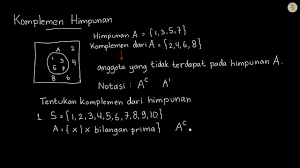 Komplemen Himpunan
Himpunan A = {1,3,5,7}
Komplemen dari A = {2,4,6,8}
A 2
1 3 4
5 7
8 6
anggota yang tidak terdapat pada himpunan A.
Notasi : Aᶜ A'
Tentukan komplemen dari himpunan
1. S = {1,2,3,4,5,6,7,8,9,10}
A = {x | x bilangan prima} Aᶜ